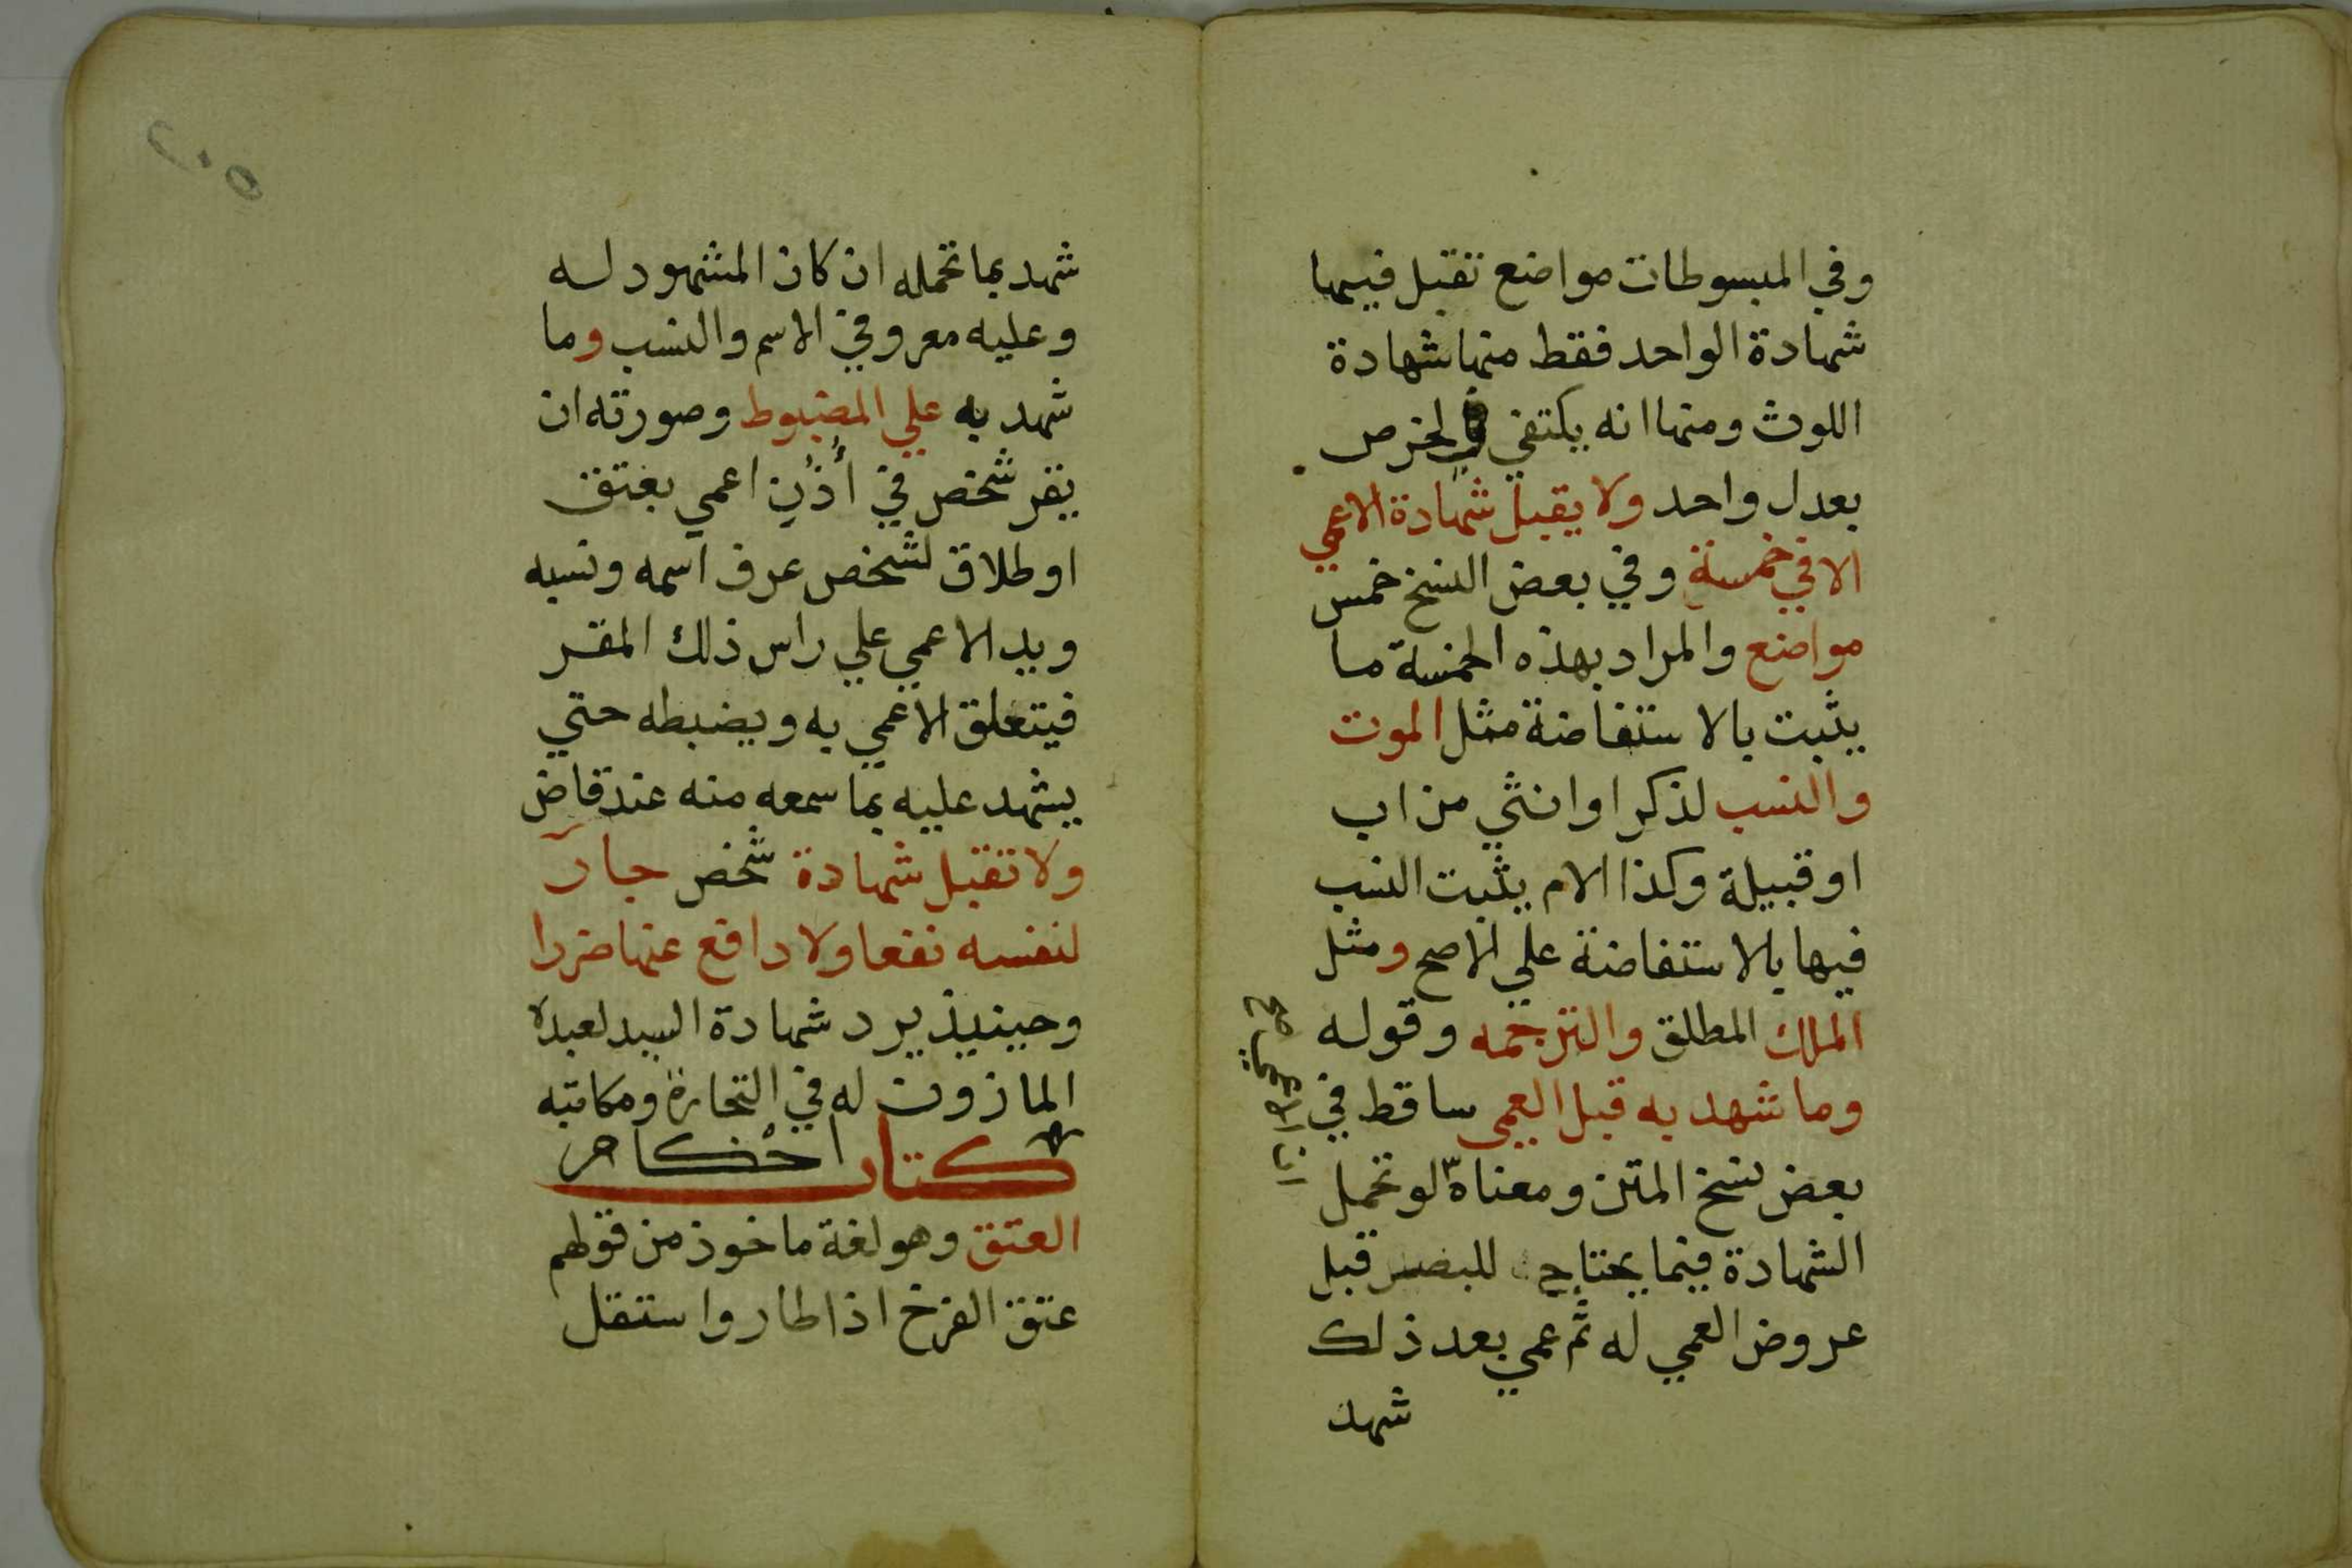 وفي المبسوطات مواضع تقبل فيها
شهادة الواحد فقط منها شهادة
اللوث ومنها انه يكتفي في الخرص
بعدل واحد ولا يقبل شهادة الاعمي
الا في خمسة وفي بعض النسخ خمس
مواضع والمراد بهذه الخمسة ما
يثبت بالاستفاضة مثل الموت
والنسب لذكر او انثي من اب
او قبيلة وكذا الام يثبت النسب
فيها بالاستفاضة علي الاصح ومثل
الملك المطلق والترجمه وقوله
وما شهد به قبل العمي ساقط في
بعض نسخ المتن ومعناه لو تحمل
الشهادة فيما يحتاج للبصر قبل
عروض العمي له ثم عمي بعد ذلك
شهد
ان الاعمي
صح
شهد بما تحمله ان كان المشهود له
وعليه معروفي الاسم والنسب وما
شهد به علي المضبوط وصورته ان
يقر شخص في أُذُنِ اعمي بعتق
او طلاق لشخص عرف اسمه ونسبه
ويد الاعمي علي راس ذلك المقر
فيتعلق الاعمي به ويضبطه حتي
يشهد عليه بما سمعه منه عند قاض
ولا تقبل شهادة شخص جار
لنفسه نفعا ولا دافع عنها ضررا
وحينيذ يرد شهادة السيد لعبده
الماذون له في التجارة ومكاتبه
كتاب احكام
العتق وهو لغة ماخوذ من قولهم
عتق الفرخ اذا طار واستقل